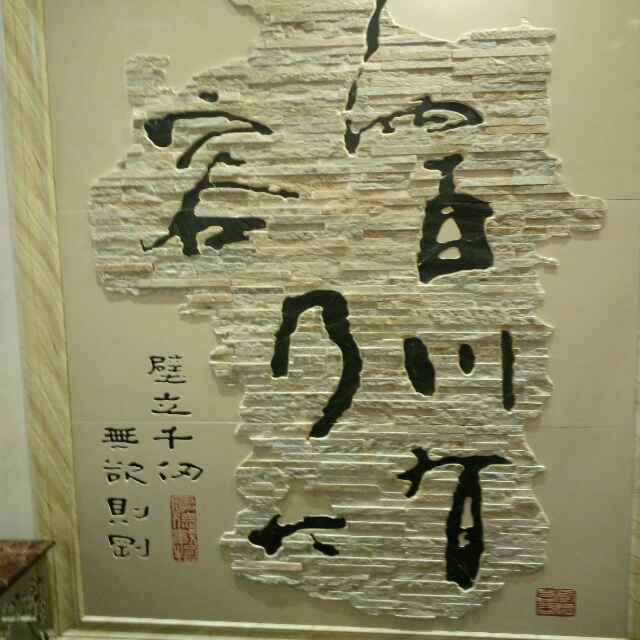 百川有
容乃大
壁立千仞
無欲則剛